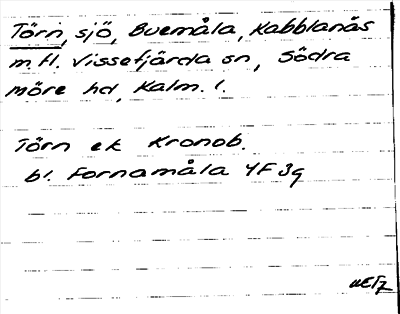 Törn, sjö, Buemåla, Kabblanäs
m. fl. Vissefjärda sn, Södra
möre hd, Kalm. l.
Törn ek Kronob.
bl. Fornamåla 4F 3g